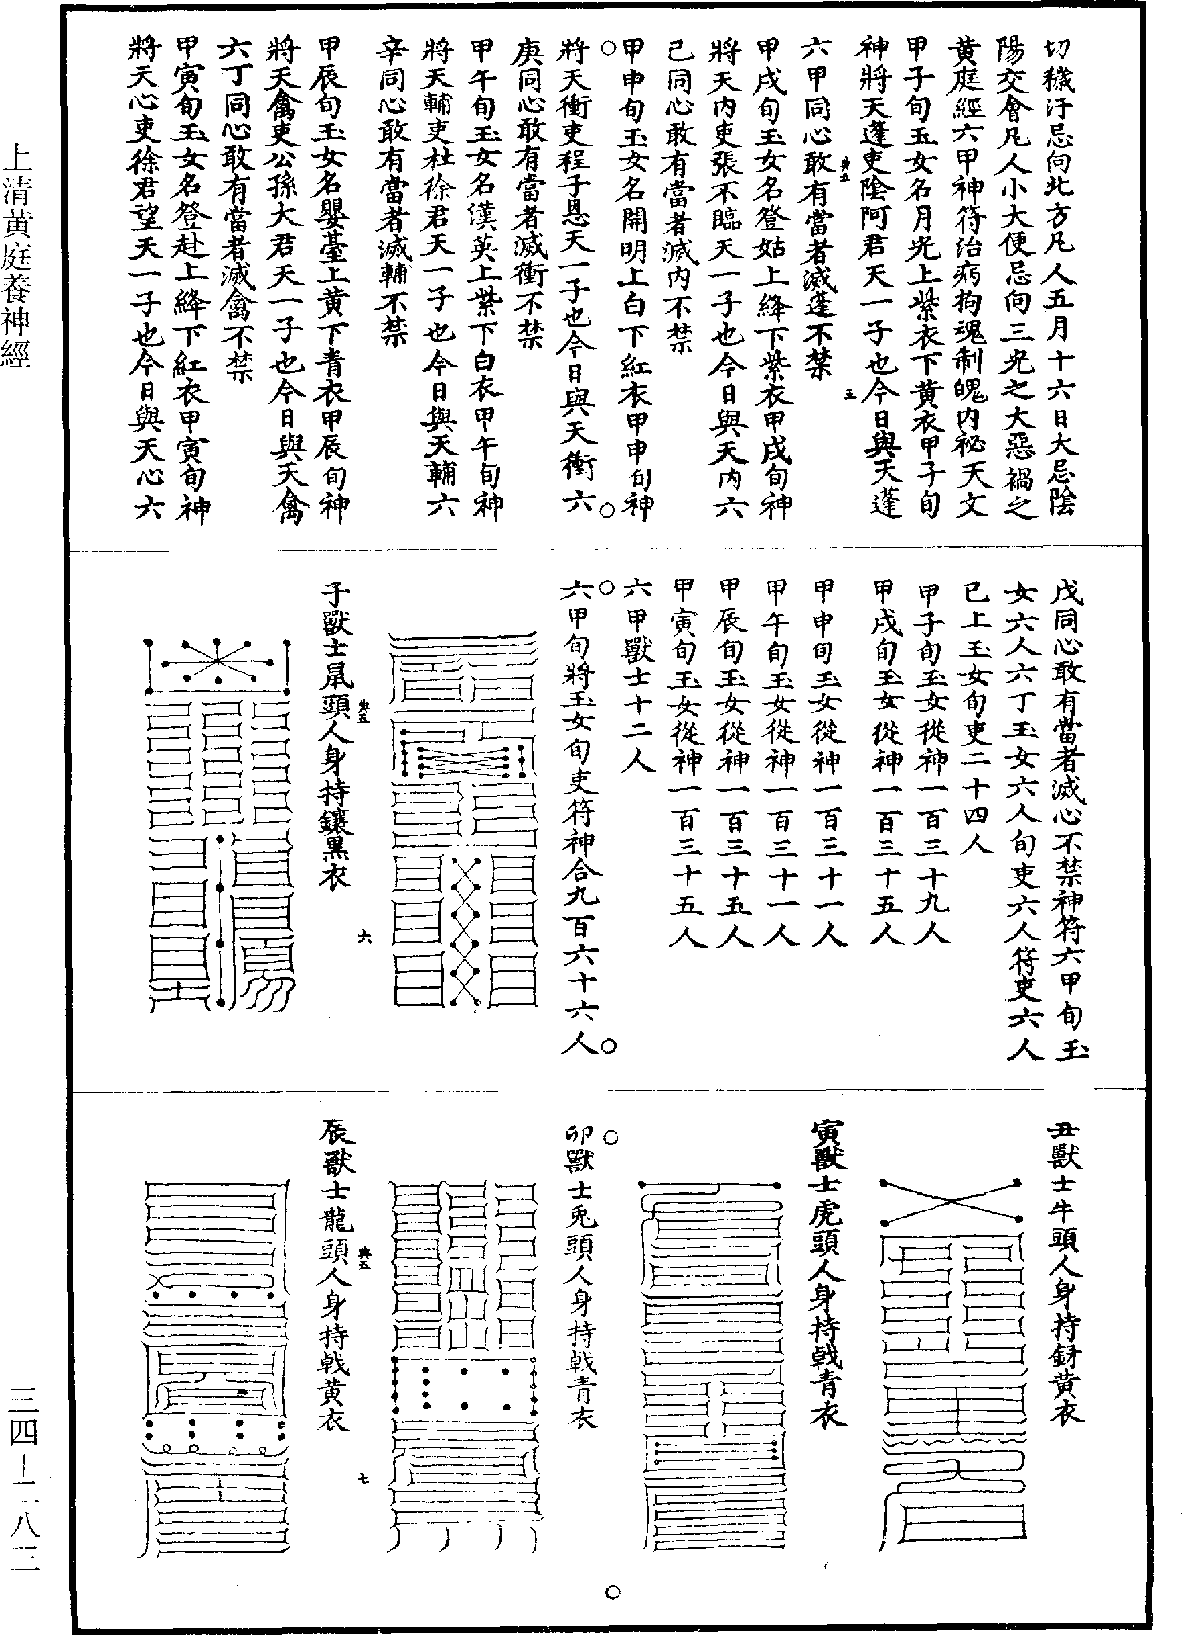 切穢汙忌向北方凡人五月十六日大忌陰
陽交會凡人小大便忌向三光之大惡禍之
黃庭經六甲神符治病拘魂制魄內祕天文
甲子旬玉女名月光上紫衣下黃衣甲子旬
神將天蓬吏陰阿君天一子也今日與天蓬
六甲同心敢有當者滅蓬不禁
甲戌旬玉女名登姑上絳下紫衣甲戌旬神
將天內吏張不臨天一子也今日與天內六
己同心敢有當者滅內不禁
甲申旬玉女名開明上白下紅衣甲申旬神
將天衝吏程子恩天一子也今日與天衝六
庚同心敢有當者滅衝不禁
甲午旬玉女名漢英上紫下白衣甲午旬神
將天輔吏杜徐君天一子也今日與天輔六
辛同心敢有當者滅輔不禁
甲辰旬玉女名嬰臺上黃下青衣甲辰旬神
將天禽吏公孫大君天一子也今日與天禽
六丁同心敢有當者滅禽不禁
甲寅旬玉女名登赴上絳下紅衣甲寅旬神
將天心吏徐君望天一子也今日與天心六
戊同心敢有當者滅心不禁神符六甲旬玉
女六人六丁玉女六人旬吏六人符吏六人
已上玉女旬吏二十四人
甲子旬玉女從神一百三十九人
甲戌旬玉女從神一百三十五人
甲申旬玉女從神一百三十一人
甲午旬玉女從神一百三十一人
甲辰旬玉女從神一百三十五人
甲寅旬玉女從神一百三十五人
六甲獸士十二人
六甲旬將玉女旬吏符神合九百六十六人
子獸士鼠頭人身持鑲黑衣
六
丑獸士牛頭人身持釾黃衣
寅獸士虎頭人身持戟青衣
卯獸士兎頭人身持戟青衣
辰獸士龍頭人身持戟黃衣
七
上清黃庭養神經
三四—二八三